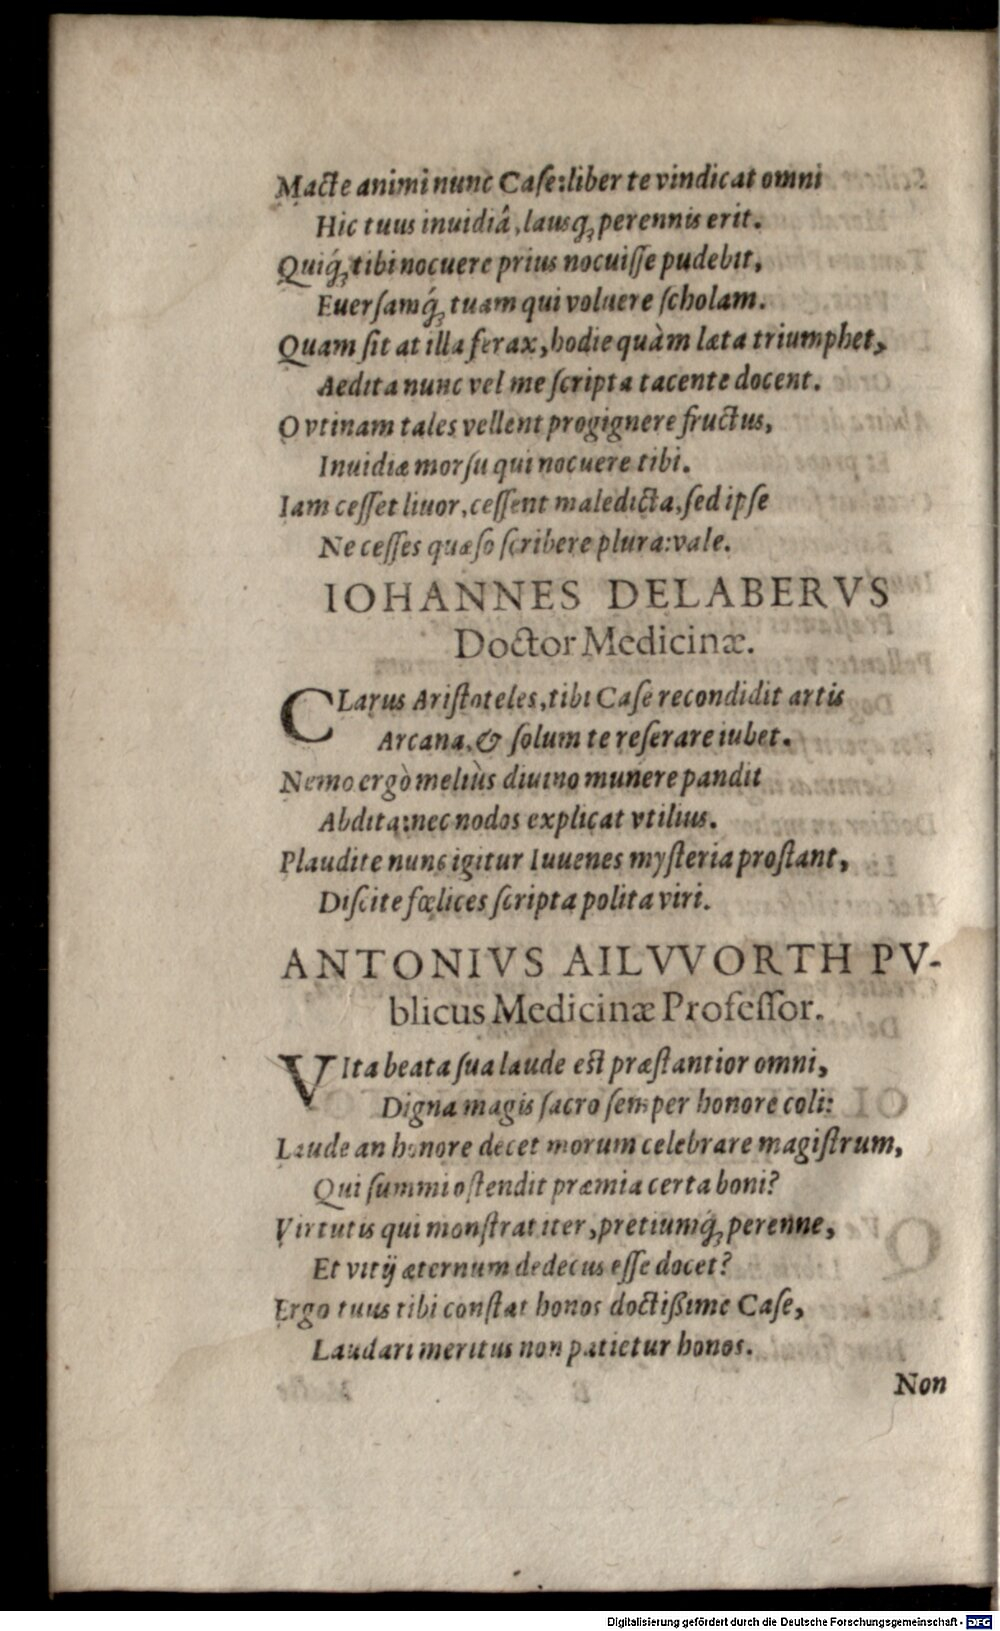 Macte animi nunc Case: liber te vindicat omni
Hic tuus inuidiâ, lausq́; perennis erit.
Quiq́; tibi nocuere prius nocuiſſe pudebit,
Euerſamq́; tuam qui voluere ſcholam.
Quam ſit at illa ferax, hodie quàm læta triumphet,
Aedita nunc vel me ſcripta tacente docent.
O vtinam tales vellent progignere fructus,
Inuidiæ morſu qui nocuere tibi.
Iam ceſſet liuor, ceſſent maledicta, ſed ipſe
Ne ceſſes quæſo ſcribere plura: vale.
IOHANNES DELABERVS
Doctor Medicinæ.
CLarus Ariſtoteles, tibi Caſe recondidit artis
Arcana, & ſolum te reſerare iubet.
Nemo ergò meliùs diuino munere pandit
Abdita: nec nodos explicat vtilius.
Plaudite nunc igitur Iuuenes myſteria proſtant,
Diſcite fœlices ſcripta polita viri.
ANTONIVS AILVVORTH PV-
blicus Medicinæ Profeſſor.
VIta beata ſua laude eſt præſtantior omni,
Digna magis ſacro ſemper honore coli:
Laude an honore decet morum celebrare magiſtrum,
Qui ſummi oſtendit præmia certa boni?
Virtutis qui monſtrat iter, pretiumq́; perenne,
Et vitij æternum dedecus eſſe docet?
Ergo tuus tibi conſtat honos doctißime Caſe,
Laudari meritus non patietur honos.
Non
Digitalisierung gefördert durch die Deutsche Forschungsgemeinschaft - DFG